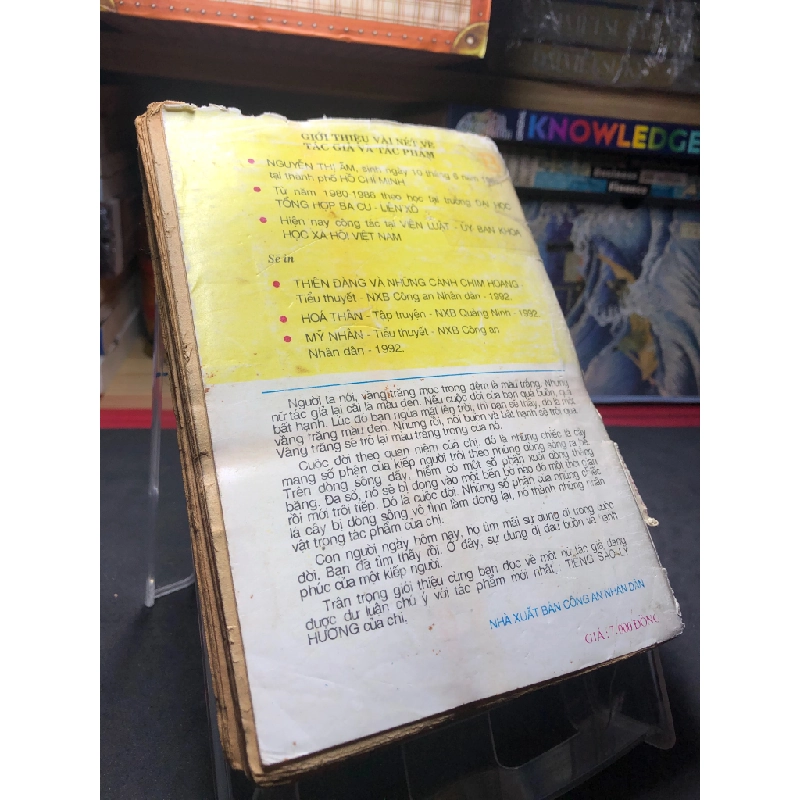 KNOWLEDGE
Business
Finance
GIỚI THIỆU VÀI NÉT VỀ
TÁC GIẢ VÀ TÁC PHẨM
NGUYỄN THỊ ẤM, sinh ngày 10 tháng 8 năm
tại thành phố HỒ CHÍ MINH
Từ năm 1980-1986 theo học tại trường ĐẠI HỌC
TỔNG HỢP BA CU - LIÊN XÔ
Hiện nay công tác tại VIỆN LUẬT - ỦY BAN KHOA
HỌC XÃ HỘI VIỆT NAM
Sẽ in
THIÊN ĐÀNG VÀ NHỮNG CÁNH CHIM HOANG
Tiểu thuyết - NXB Công an Nhân dân - 1992.
HOÁ THÂN - Tập truyện - NXB Quảng Ninh - 1992.
MỸ NHÂN - Tiểu thuyết - NXB Công an
Nhân dân - 1992.
Người ta nói, vầng trăng mọc trong đêm là màu trắng. Nhưng
nữ tác giả lại cãi là màu đen. Nếu cuộc đời của bạn quá buồn, quá
bất hạnh. Lúc đó bạn ngửa mặt lên trời, thì bạn sẽ thấy, đó là một
vầng trăng màu đen. Nhưng rồi, nỗi buồn và bất hạnh sẽ trôi qua.
Vầng trăng sẽ trở lại màu trắng trong của nó.
Cuộc đời theo quan niệm của chị, đó là những chiếc lá cây
mang số phận của kiếp người trôi theo những dòng sông ra bể.
Trên dòng sông đấy, hiếm có một số phận xuôi dòng thẳng
băng. Đa số, nó sẽ bị dong vào một bến bờ nào đó một thời gian
rồi mới trôi tiếp. Đó là cuộc đời. Những số phận của những chiếc
lá cây bị dòng sông vô tình làm đọng lại, nó thành những nhân
vật trong tác phẩm của chị.
Con người ngày hôm nay, họ tìm mãi sự dung dị trong cuộc
đời. Bạn đã tìm thấy rồi. Ở đây, sự dung dị đau buồn và hạnh
phúc của một kiếp người.
Trân trọng giới thiệu cùng bạn đọc về một nữ tác giả đang
được dư luận chú ý với tác phẩm mới nhất, TIẾNG SÁO Ý
HƯƠNG của chị.
NHÀ XUẤT BẢN CÔNG AN NHÂN DÂN
GIÁ: 7.000 ĐỒNG